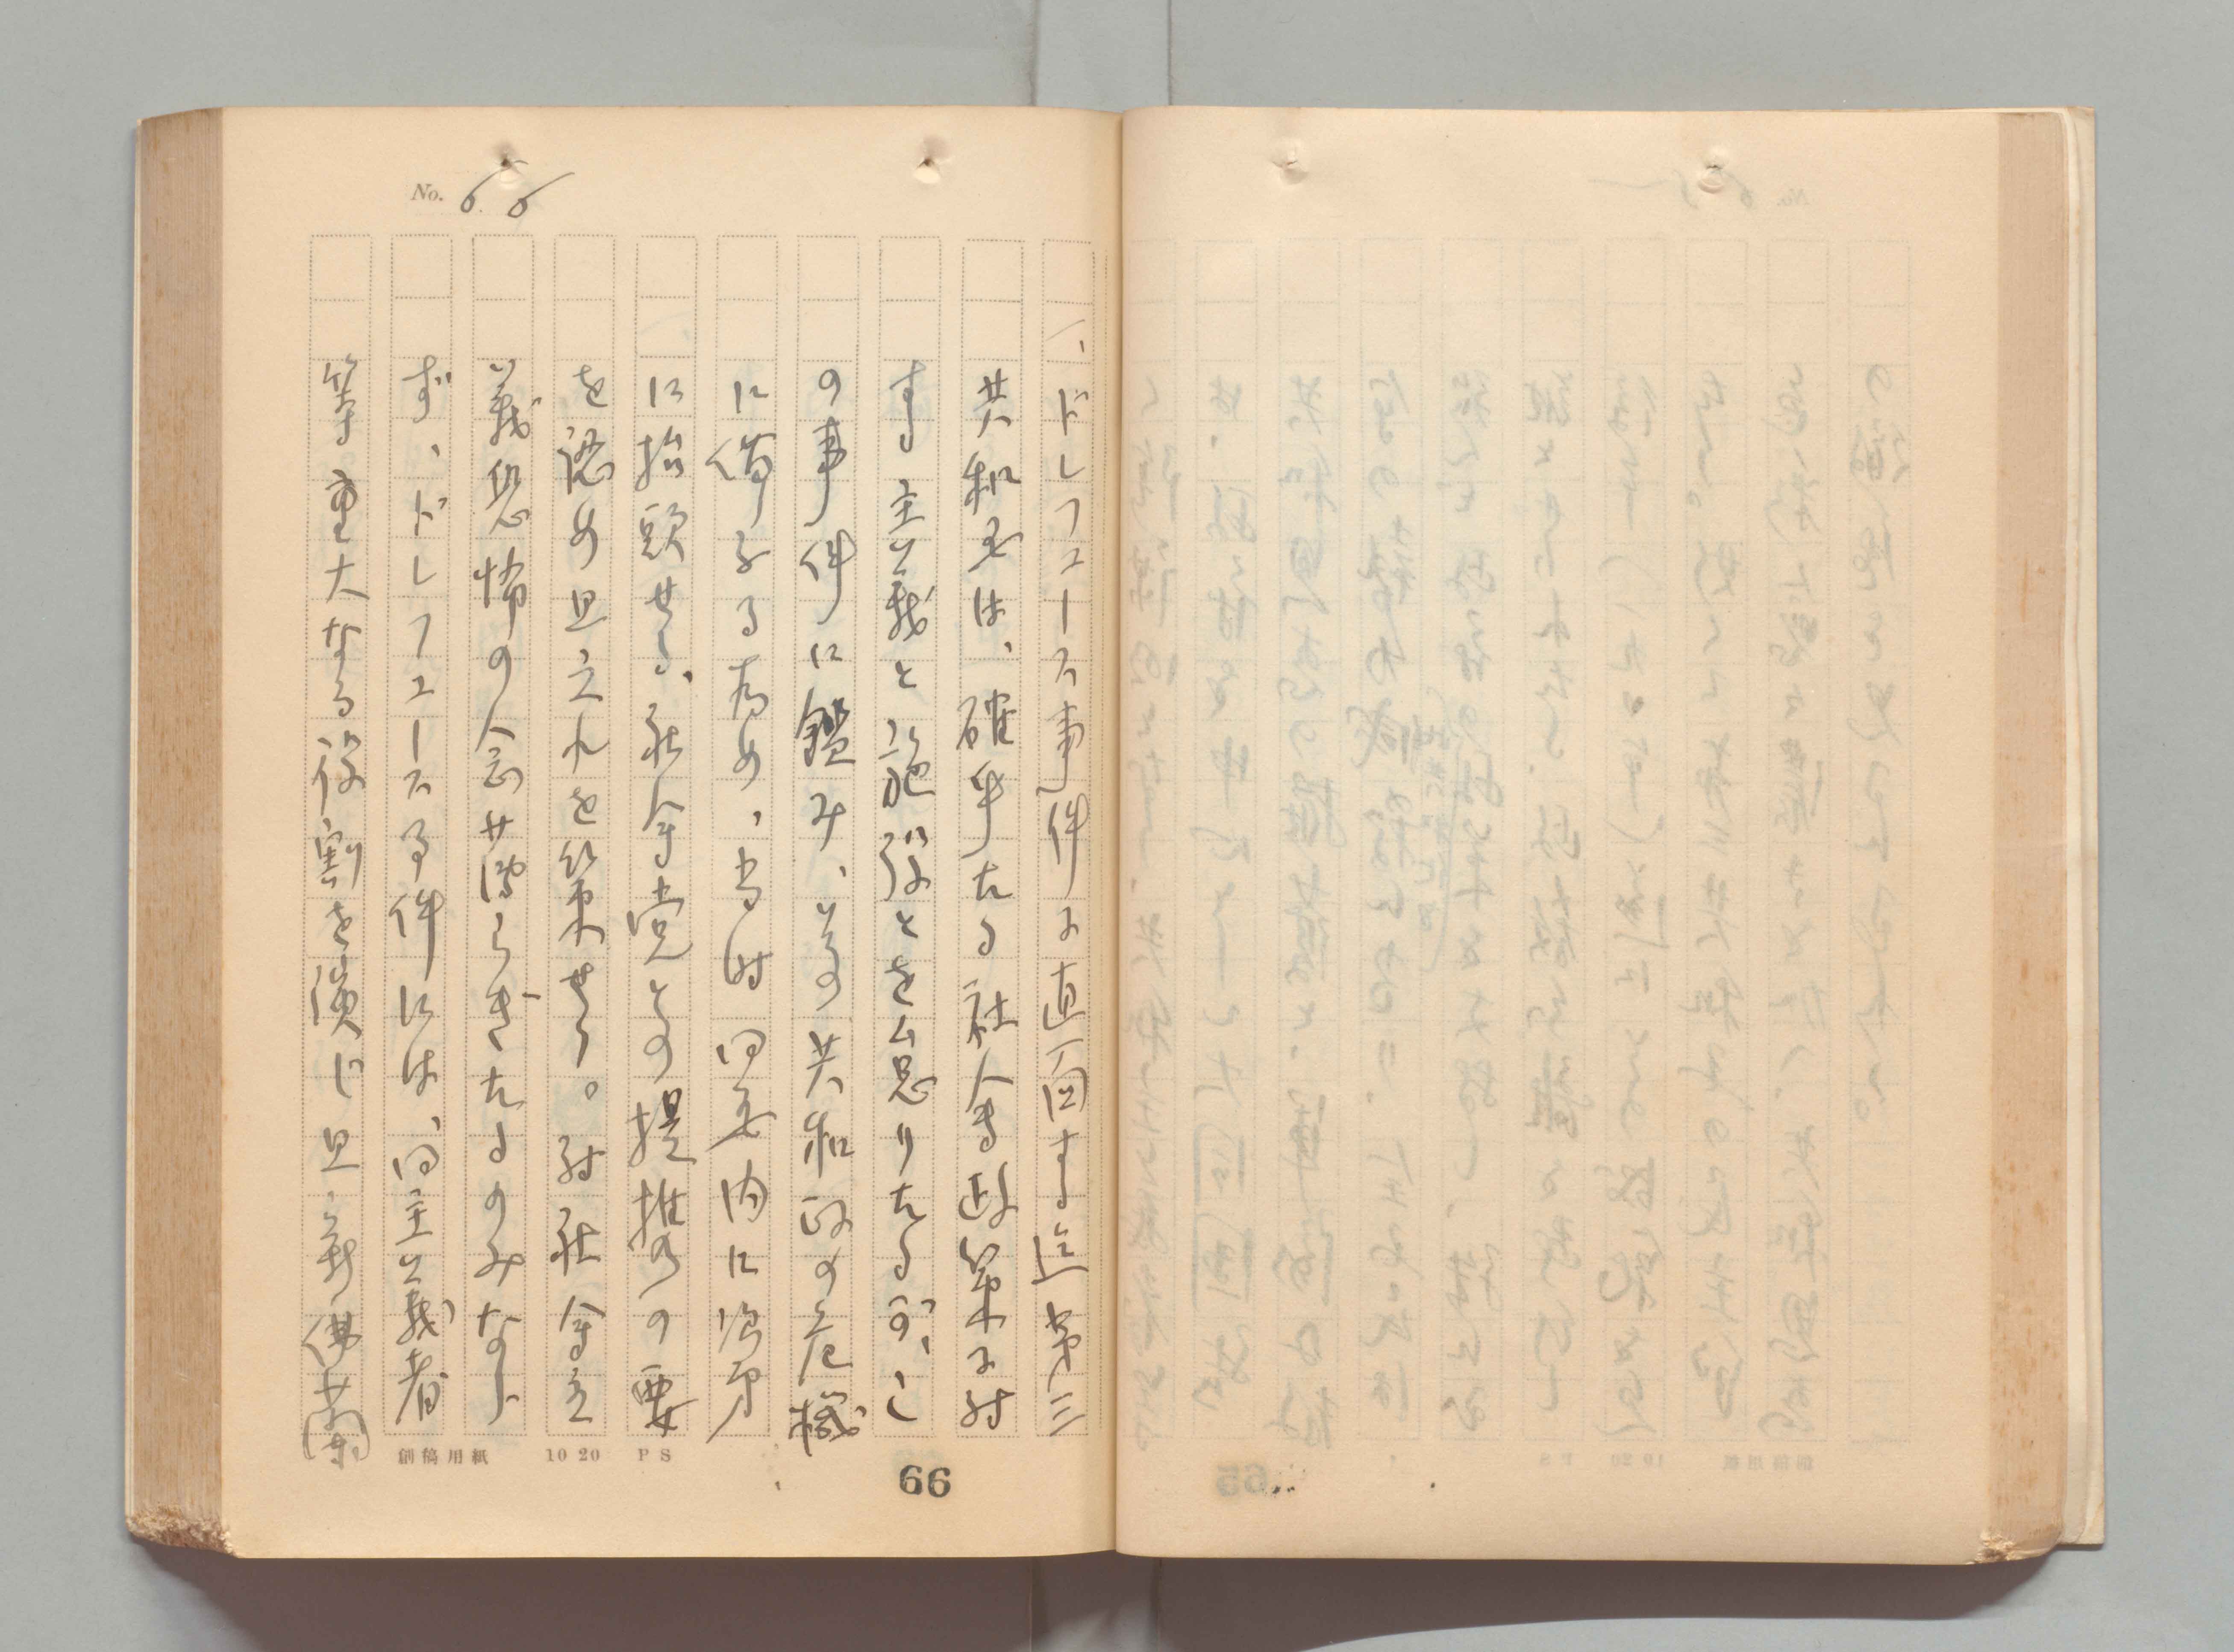 No. 66
一、ドレフュース事件に直面する迄第三
共和国は、確乎たる社会政策に対
する主義と施設とを怠りたるが、こ
の事件に鑑み、その共和政の危機
に備ふる為め、当時同国内に漸次
に抬頭せる、社会党との提携の要
を認め且之れを策せり。対社会主
義恐怖の念薄らぎたるのみなら
ず、ドレフュースる件には、同主義者
等重大なる役割を演じ且新仏蘭
創稿用紙 10 20 PS
66